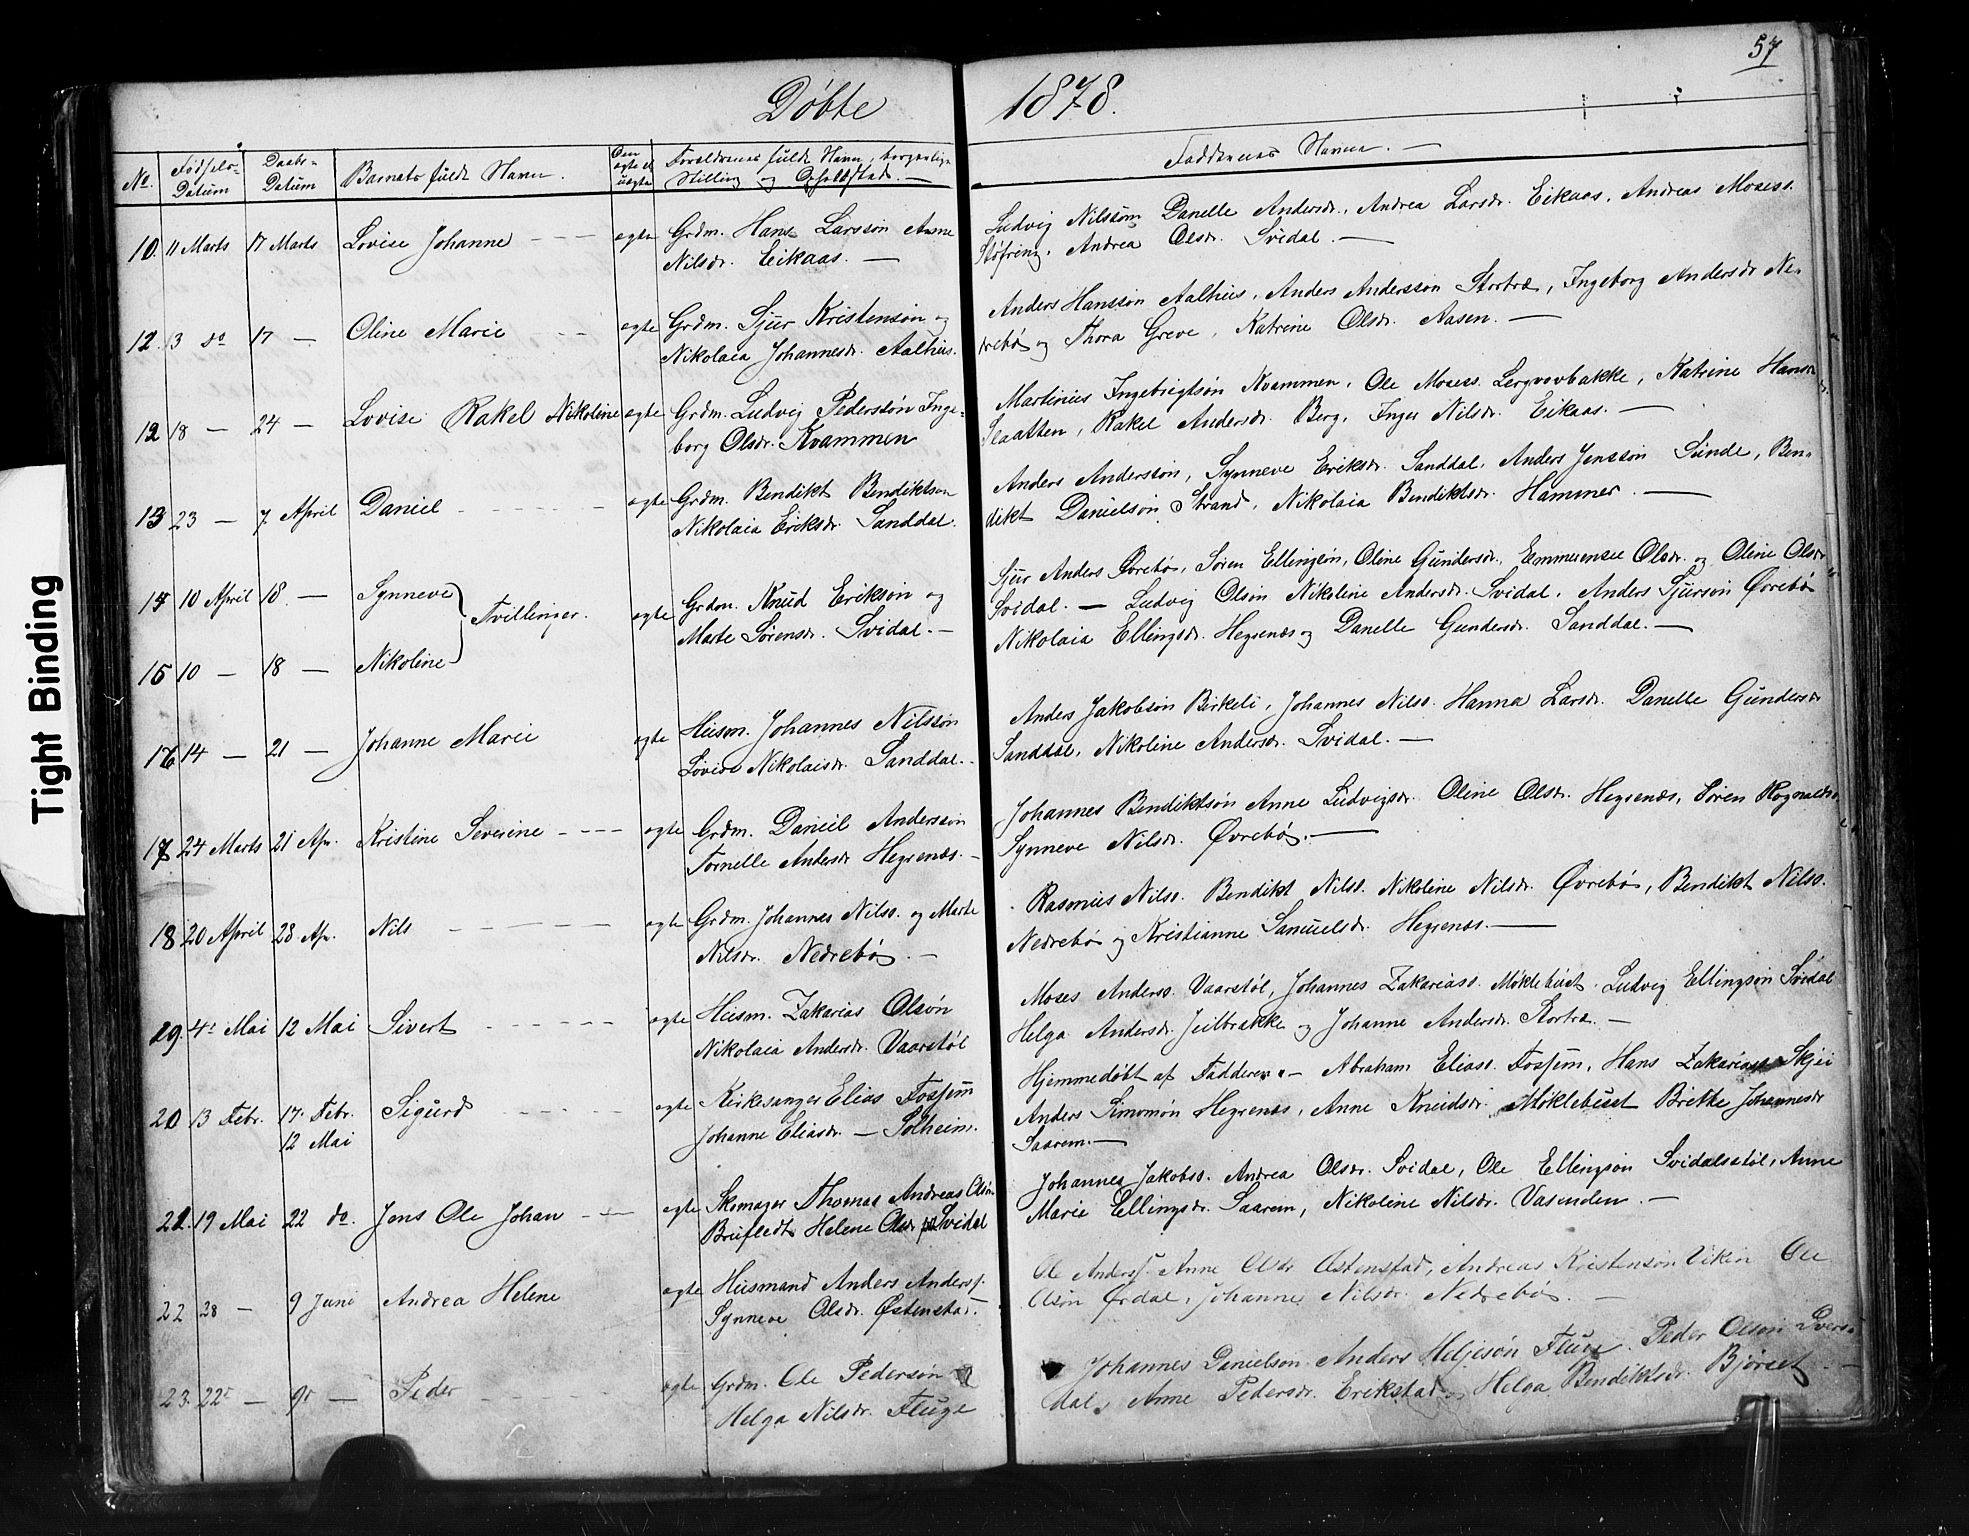 57
Døbte 1878.
No. Fødsels-Datum Daabs-Datum Barnets fulde Navn. Om ægte el uægte Forældrenes fulde Navn, borgerlige Stilling og Opholdssted. — Faddernes Navne. —
10. 11 Marts 17 Marts Lovise Johanne — — — ægte Grdm. Hans Larssøn Anne
Nilsdr. Eikaas. —
Ludvig Nilssøn Danelle Andersdr., Andrea Larsdr. Eikaas, Andreas Mosess.
Støfring, Andrea Olsdr. Svidal. —
12. 13 do 17 — Oline Marie — — ægte Grdm. Sjur Kristensøn og
Nikolaia Johannesdr. Aalhus.
Anders Hanssøn Aalhus, Anders Anderssøn Stortræ, Ingeborg Andersdr Ne-
drebø og Thora Greve, Katrine Olsdr. Aasen. —
12 18 — 24 — Lovise Rakel Nikoline ægte Grdm. Ludvig Pederssøn Inge-
borg Olsdr. Kvammen
Martinus Ingebrigtsøn Kvammen, Ole Mosess. Lergrovbakke, Katrine Hansdr
Slaatten, Rakel Andersdr. Berg, Inger Nilsdr. Eikaas. —
13 23 — 7 April Daniel — — — ægte Grdm. Bendikt Bendiktsen
Nikolaia Eriksdr. Sanddal.
Anders Anderssøn, Synneve Eriksdr. Sanddal, Anders Jenssøn Sunde, Ben-
dikt Danielsøn Strand, Nikolaia Bendiktsdr. Hammer. —
14 10 April 18. — Synneve
Tvillinger.
ægte Grdm. Knud Eriksøn og
Marte Sørensdr. Svidal. —
15 10 — 18 — Nikoline
Sjur Anders Øvrebø, Søren Ellingsøn, Oline Gundersdr, Emmerense Olsdr. og Oline Olsdr
Svidal. — Ludvig Olsøn Nikoline Andersdr. Svidal, Anders Sjursøn Øvrebø
Nikolaia Ellingsdr. Hegrenæs og Danelle Gundersdr. Sanddal. —
16 14 — 21 — Johanne Marie ægte Husm. Johannes Nilssøn
Lovise Nikolaisdr. Sanddal. -
Anders Jakobsøn Birkeli, Johannes Nilss. Hanna Larsdr. Danelle Gundersdr
Sanddal, Nikoline Andersdr. Svidal. —
17 24 Marts 21 Apr. Kristine Severine — — — ægte Grdm. Daniel Anderssøn
Tornelle Andersdr Hegrenæs. -
Johannes Bendiktsøn Anne Ludvigsdr. Oline Olsdr. Hegrenæs, Søren Rognalds.
Synneve Nilsdr. Øvrebø. —
18 20 April 28 Apr. Nils — — — ægte Grdm. Johannes Nilss. og Marte
Nilsdr. Nedrebø. —
Rasmus Nilss. Bendikt Nilss. Nikoline Nilsdr. Øvrebø, Bendikt Nilss.
Nedrebø og Kristianne Samuelsdr. Hegrenæs. —
19. 4de Mai 12 Mai Sivert — — — ægte Husm. Zakarias Olsøn
Nikolaia Andersdr. Vaarstøl
Moses Anderss. Vaarstøl, Johannes Zakariass. Møklebust. Ludvig Ellingsøn Svidal
Helga Andersdr. Jeilbrække og Johanne Andersdr. Stortræ. —
20 13 Febr. 17. Febr.
12 Mai
Sigurd — — — ægte Kirkesanger Elias Fossum
Johanne Eliasdr. — Solheim.
Hjemmedøbt af Fadderen. — Abraham Eliass. Fossum, Hans Zakariass. Skjei
Anders Simonsøn Hegrenæs, Anne Knudsdr. Møklebust Britte Johannesdr
Saarem. —
21. 19 Mai 22 do. Jens Ole Johan — — ægte Skomager Thomas Andreas Olsøn
Brufledt Helene Olsdr Svidal
Johannes Jakobss. Andrea Olsdr. Svidal, Ole Ellingsøn Svidalsstøl, Anne
Marie Ellingsdr. Saarem, Nikoline Nilsdr. Vasenden. —
22 28 — 9 Juni Andrea Helene ægte Husmand Anders Anderss.
Synneve Olsdr. Østenstad. -
Ole Anderss. Anne Olsdr Østenstad, Andreas Kristensøn Viken Ole
Olsøn Ørdal, Johanne Nilsdr. Nedrebø. —
23. 22de — 9de — Peder — — ægte Grdm. Ole Pedersøn og
Helga Nilsdr. Fluge
Johannes Danielson. Anders Heljesøn Fluge. Peder Olsøn Sværs-
dal, Anne Pedersdr. Erikstad og Helga Bendiktsdr. Bjørset. —
Tight Binding